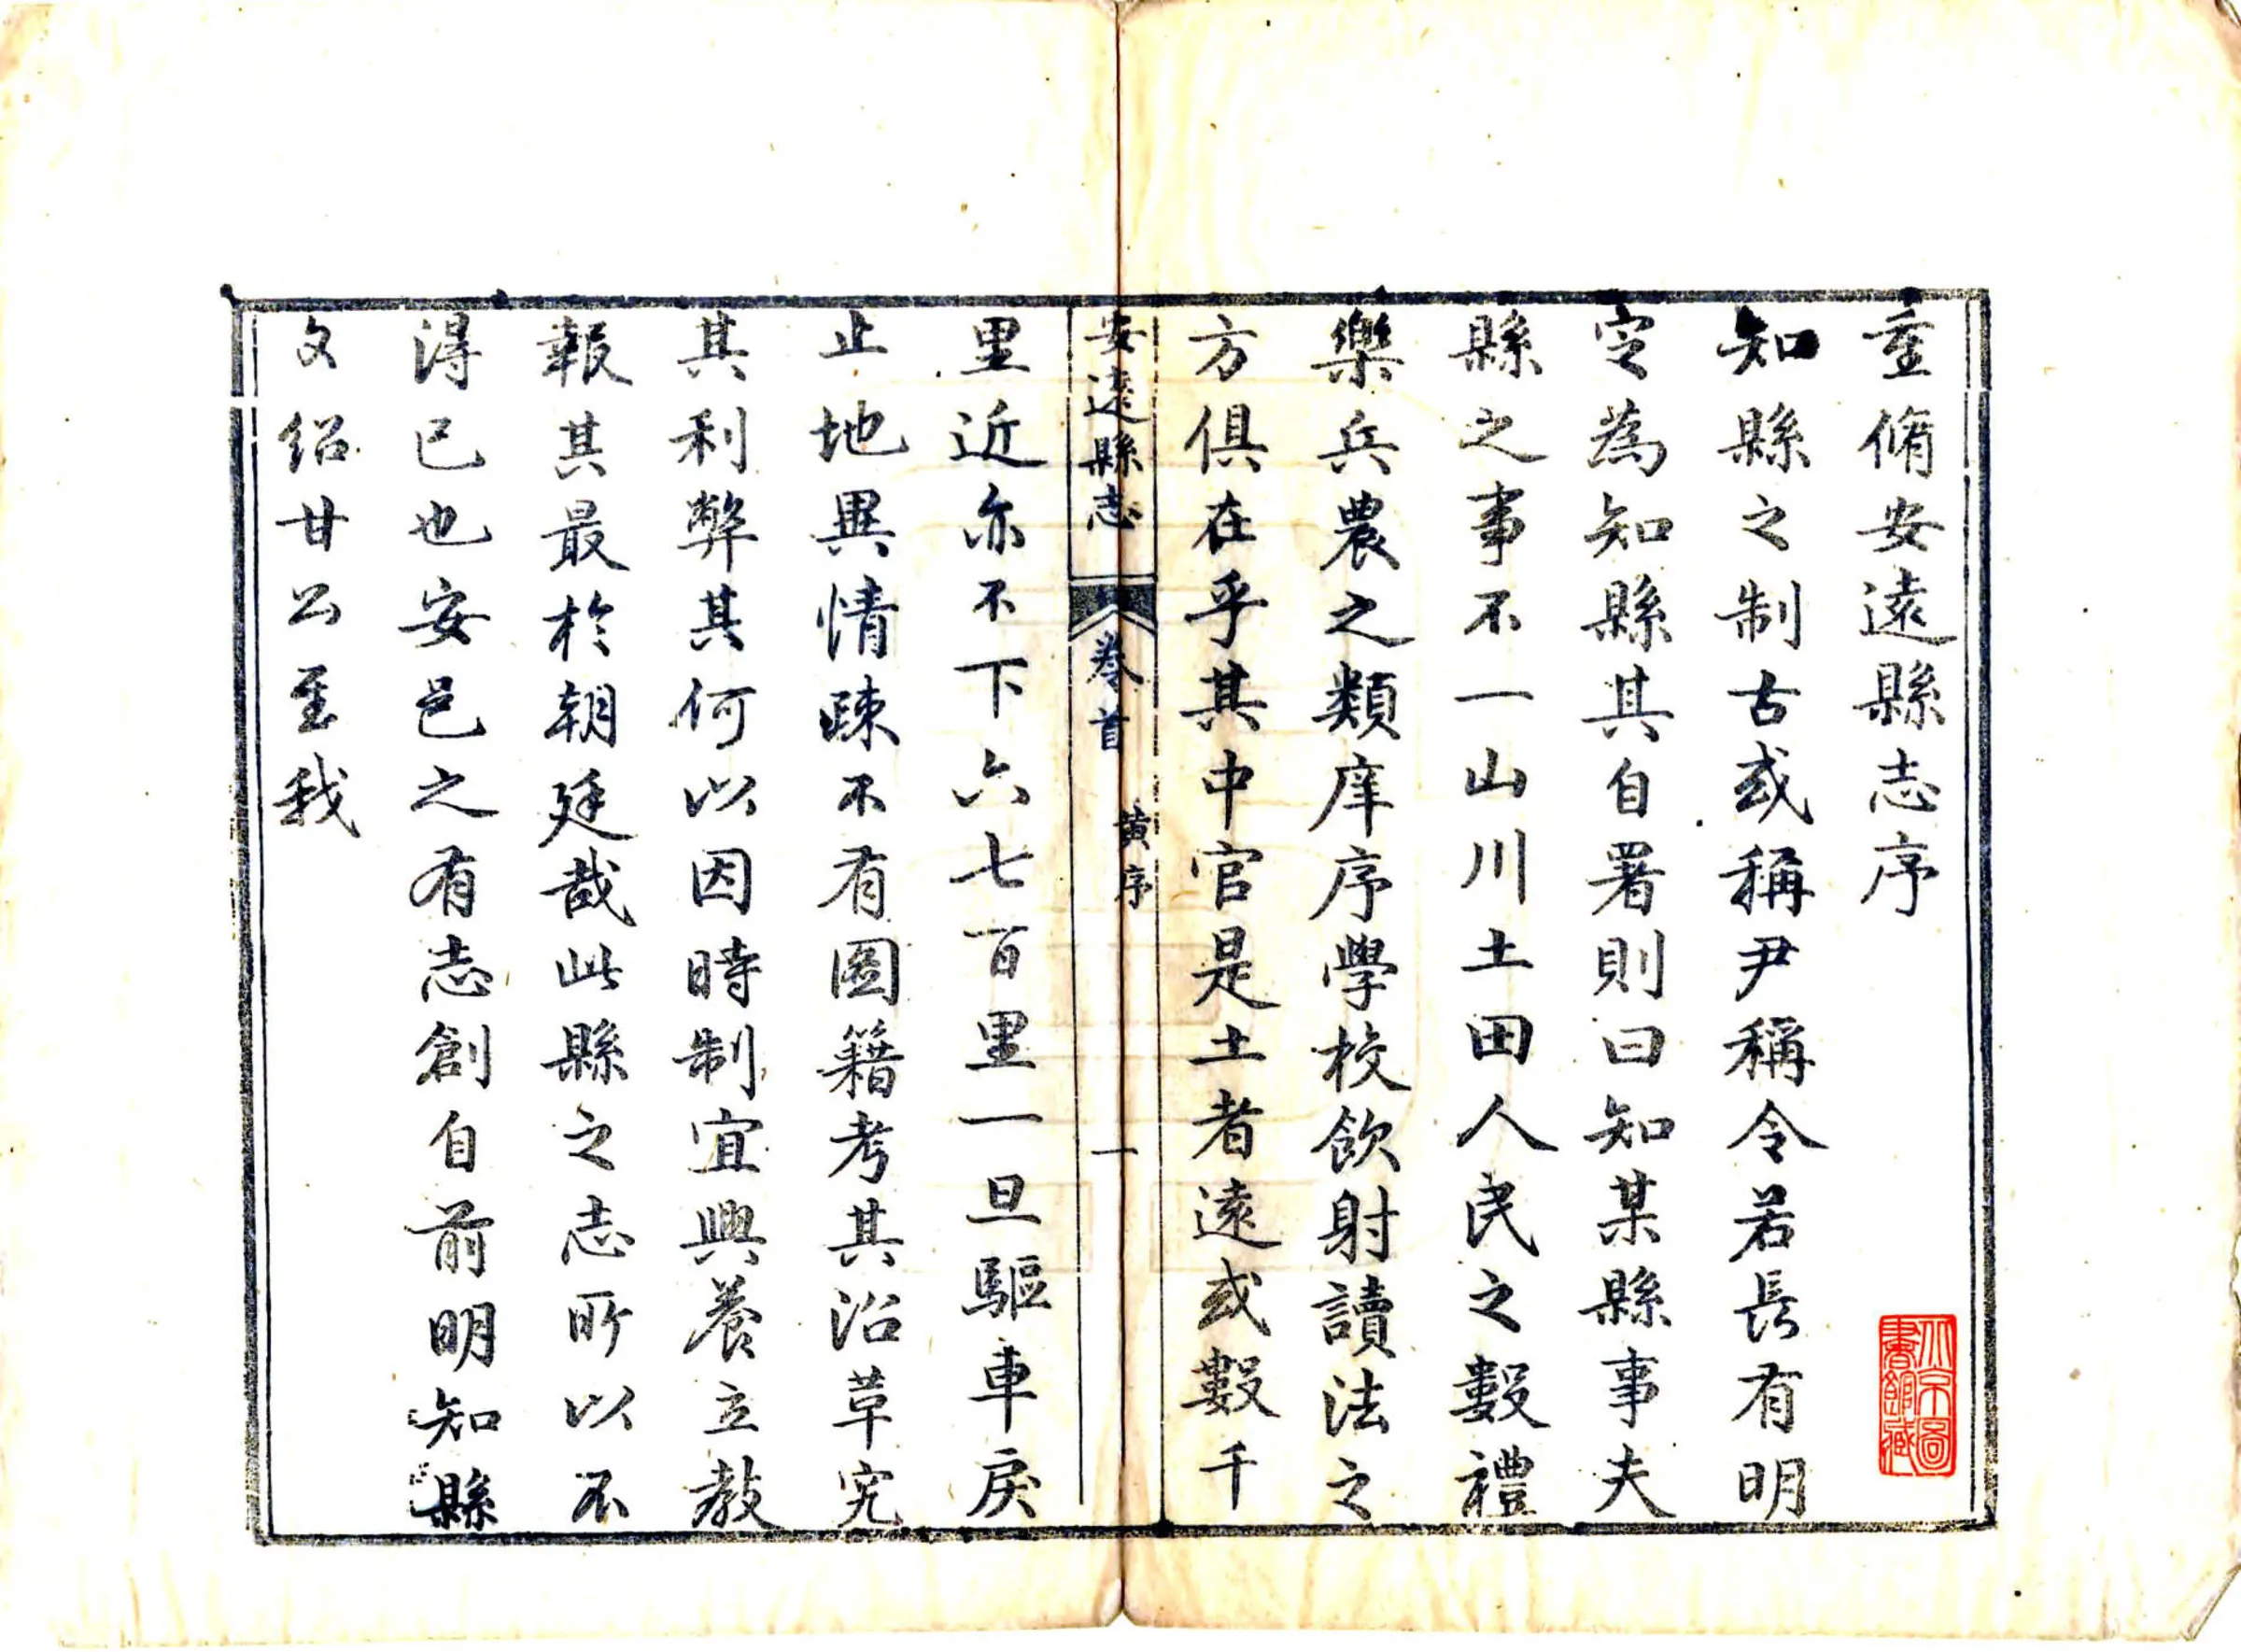 重脩安遠縣志序
知縣之制古或稱尹稱令若長有明
定為知縣其自署則曰知某縣事夫
縣之事不一山川土田人民之數禮
樂兵農之類庠序學校飲射讀法之
方俱在乎其中官是土者遠或數千
安遠縣志 卷首 黄序 一
里近亦不下六七百里一旦驅車戾
止地異情踈不有圖籍考其沿革究
其利弊其何以因時制宜興養立教
報其最於朝廷哉此縣之志所以不
得已也安邑之有志創自前明知縣
文紹甘公至我
北京圖
書館藏